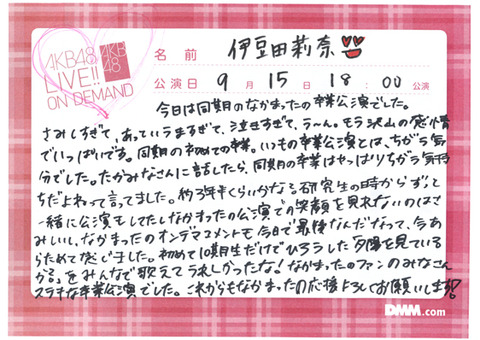 AKB48
LIVE!!
ON DEMAND
AKB
48
名前 伊豆田莉奈
公演日 9月15日 18:00 公演
今日は同期のなかまったの卒業公演でした。
さみしすぎて、あっというますぎて、泣きすぎて、う〜ん。モウ沢山の感情
でいっぱいです。同期の初めての卒業。いつもの卒業公演とは、ちがう気
分でした。たかみなさんに話したら、同期の卒業はやっぱりちがう気持
ちだよねって言ってました。約3年半くらいかな?研究生の時からずっと
一緒に公演もしてたしなかまったの公演での笑顔を見れないのはさ
みしいし、なかまったのオンデマコメントも今日で最後なんだなって、今あ
らためて感じました。初めて10期生だけでひろうした夕陽を見ている
か?を、みんなで歌えてうれしかったな!なかまったのファンのみなさん
ステキな卒業公演でした。これからもなかまったの応援よろしくお願いします!
DMM.com